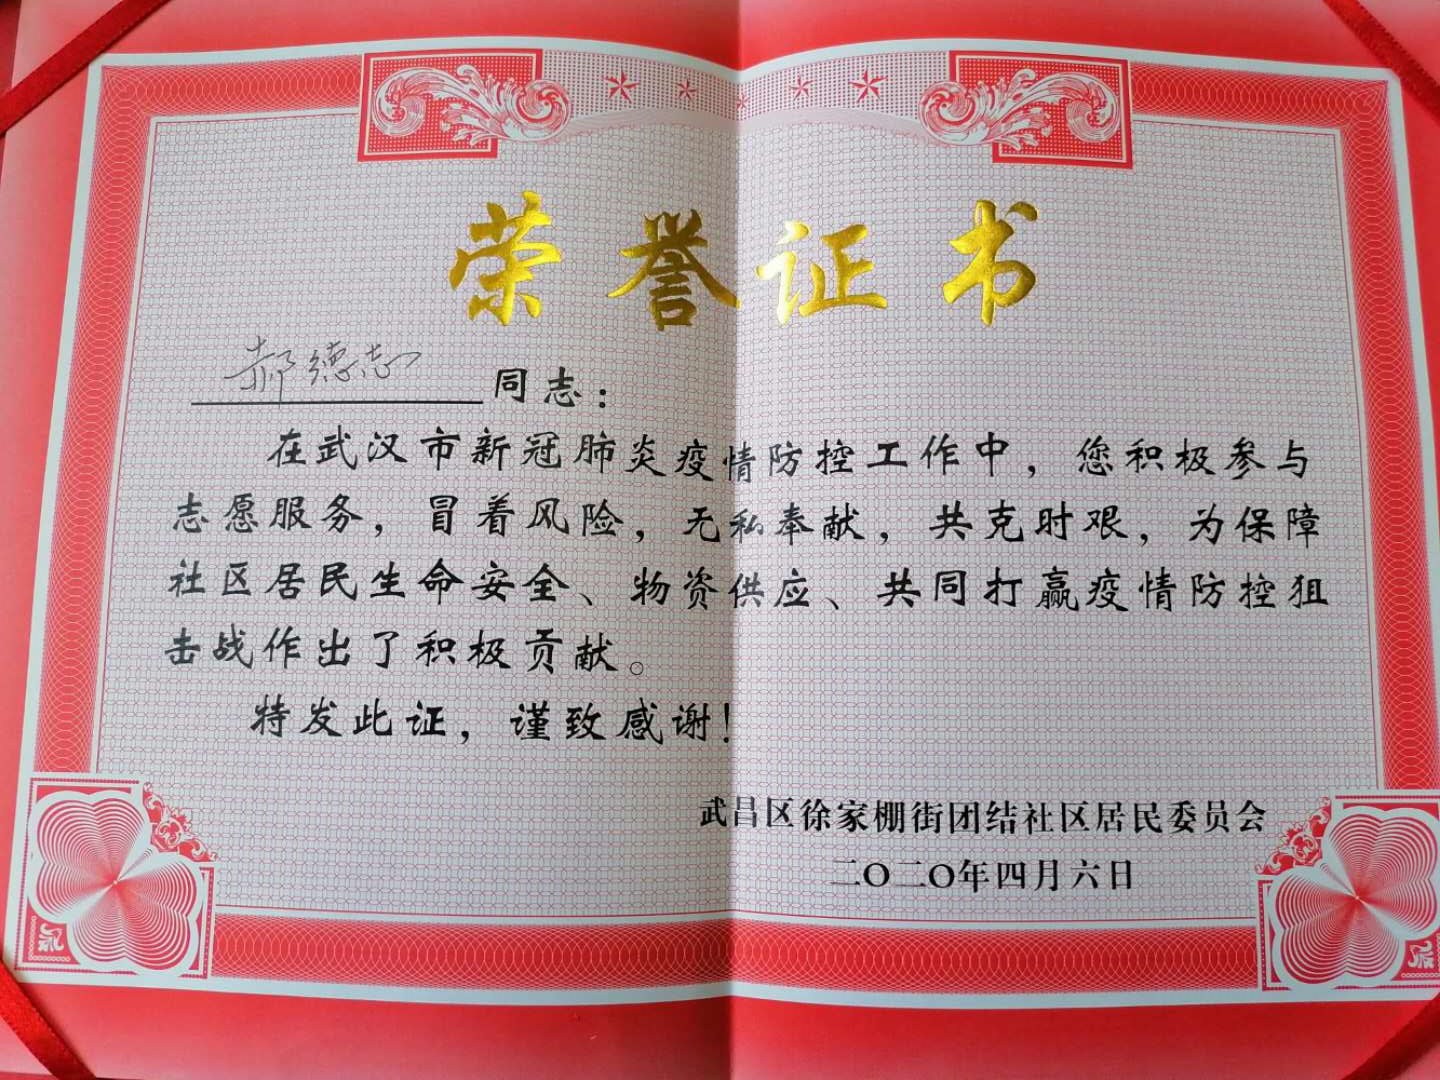 荣誉证书
郝德志同志：
在武汉市新冠肺炎疫情防控工作中，您积极参与
志愿服务，冒着风险，无私奉献，共克时艰，为保障
社区居民生命安全、物资供应、共同打赢疫情防控狙
击战作出了积极贡献。
特发此证，谨致感谢！
武昌区徐家棚街团结社区居民委员会
二〇二〇年四月六日